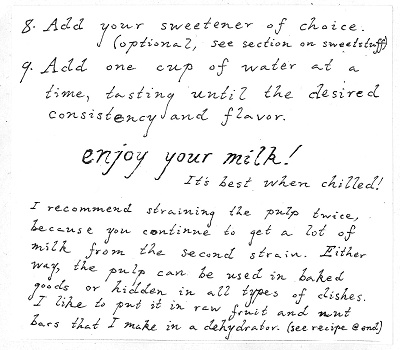 8. Add your sweetener of choice.
(optional, see section on sweetstuff)
9. Add one cup of water at a
time, tasting until the desired
consistency and flavor.
enjoy your milk!
It's best when chilled!
I recommend straining the pulp twice,
because you continue to get a lot of
milk from the second strain. Either
way, the pulp can be used in baked
goods or hidden in all types of dishes.
I like to put it in raw fruit and nut
bars that I make in a dehydrator. (see recipe @ end)